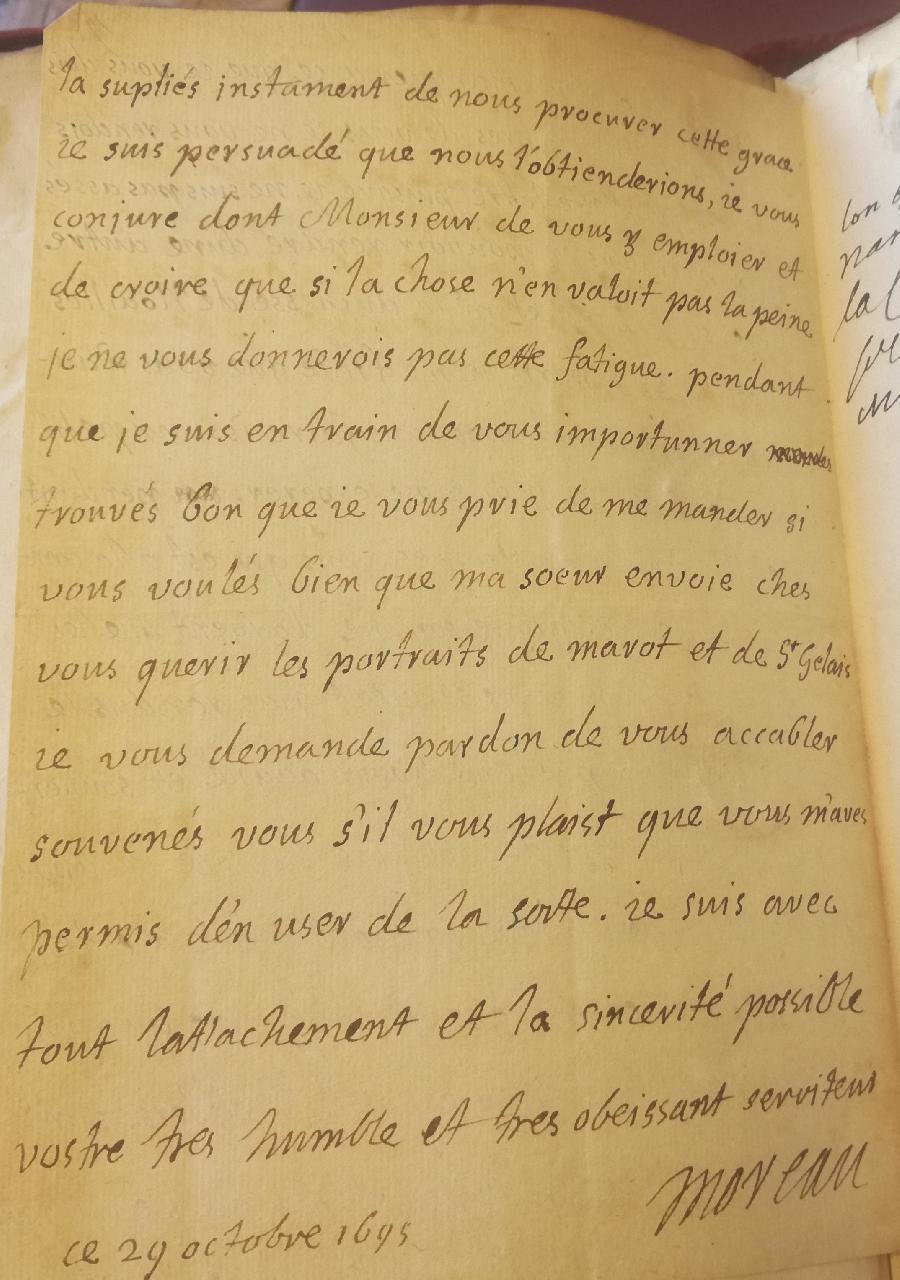 la suppliés instament de nous procurer cette grace
ie suis persuadé que nous l'obtienderions, ie vous
conjure dont Monsieur de vous y emploier et
de croire que si la chose n'en valoit pas la peine
je ne vous donnerois pas cette fatigue. pendant
que je suis en train de vous importunner
trouvés bon que ie vous prie de me mander si
vous voulés bien que ma soeur envoie ches
vous querir les portraits de marot et de St Gelais
ie vous demande pardon de vous accabler
souvenés vous s'il vous plaist que vous m'aves
permis d'en user de la sorte. ie suis avec
tout lattachement et la sincerité possible
vostre tres humble et tres obeissant serviteur
moreau
ce 29 octobre 1695